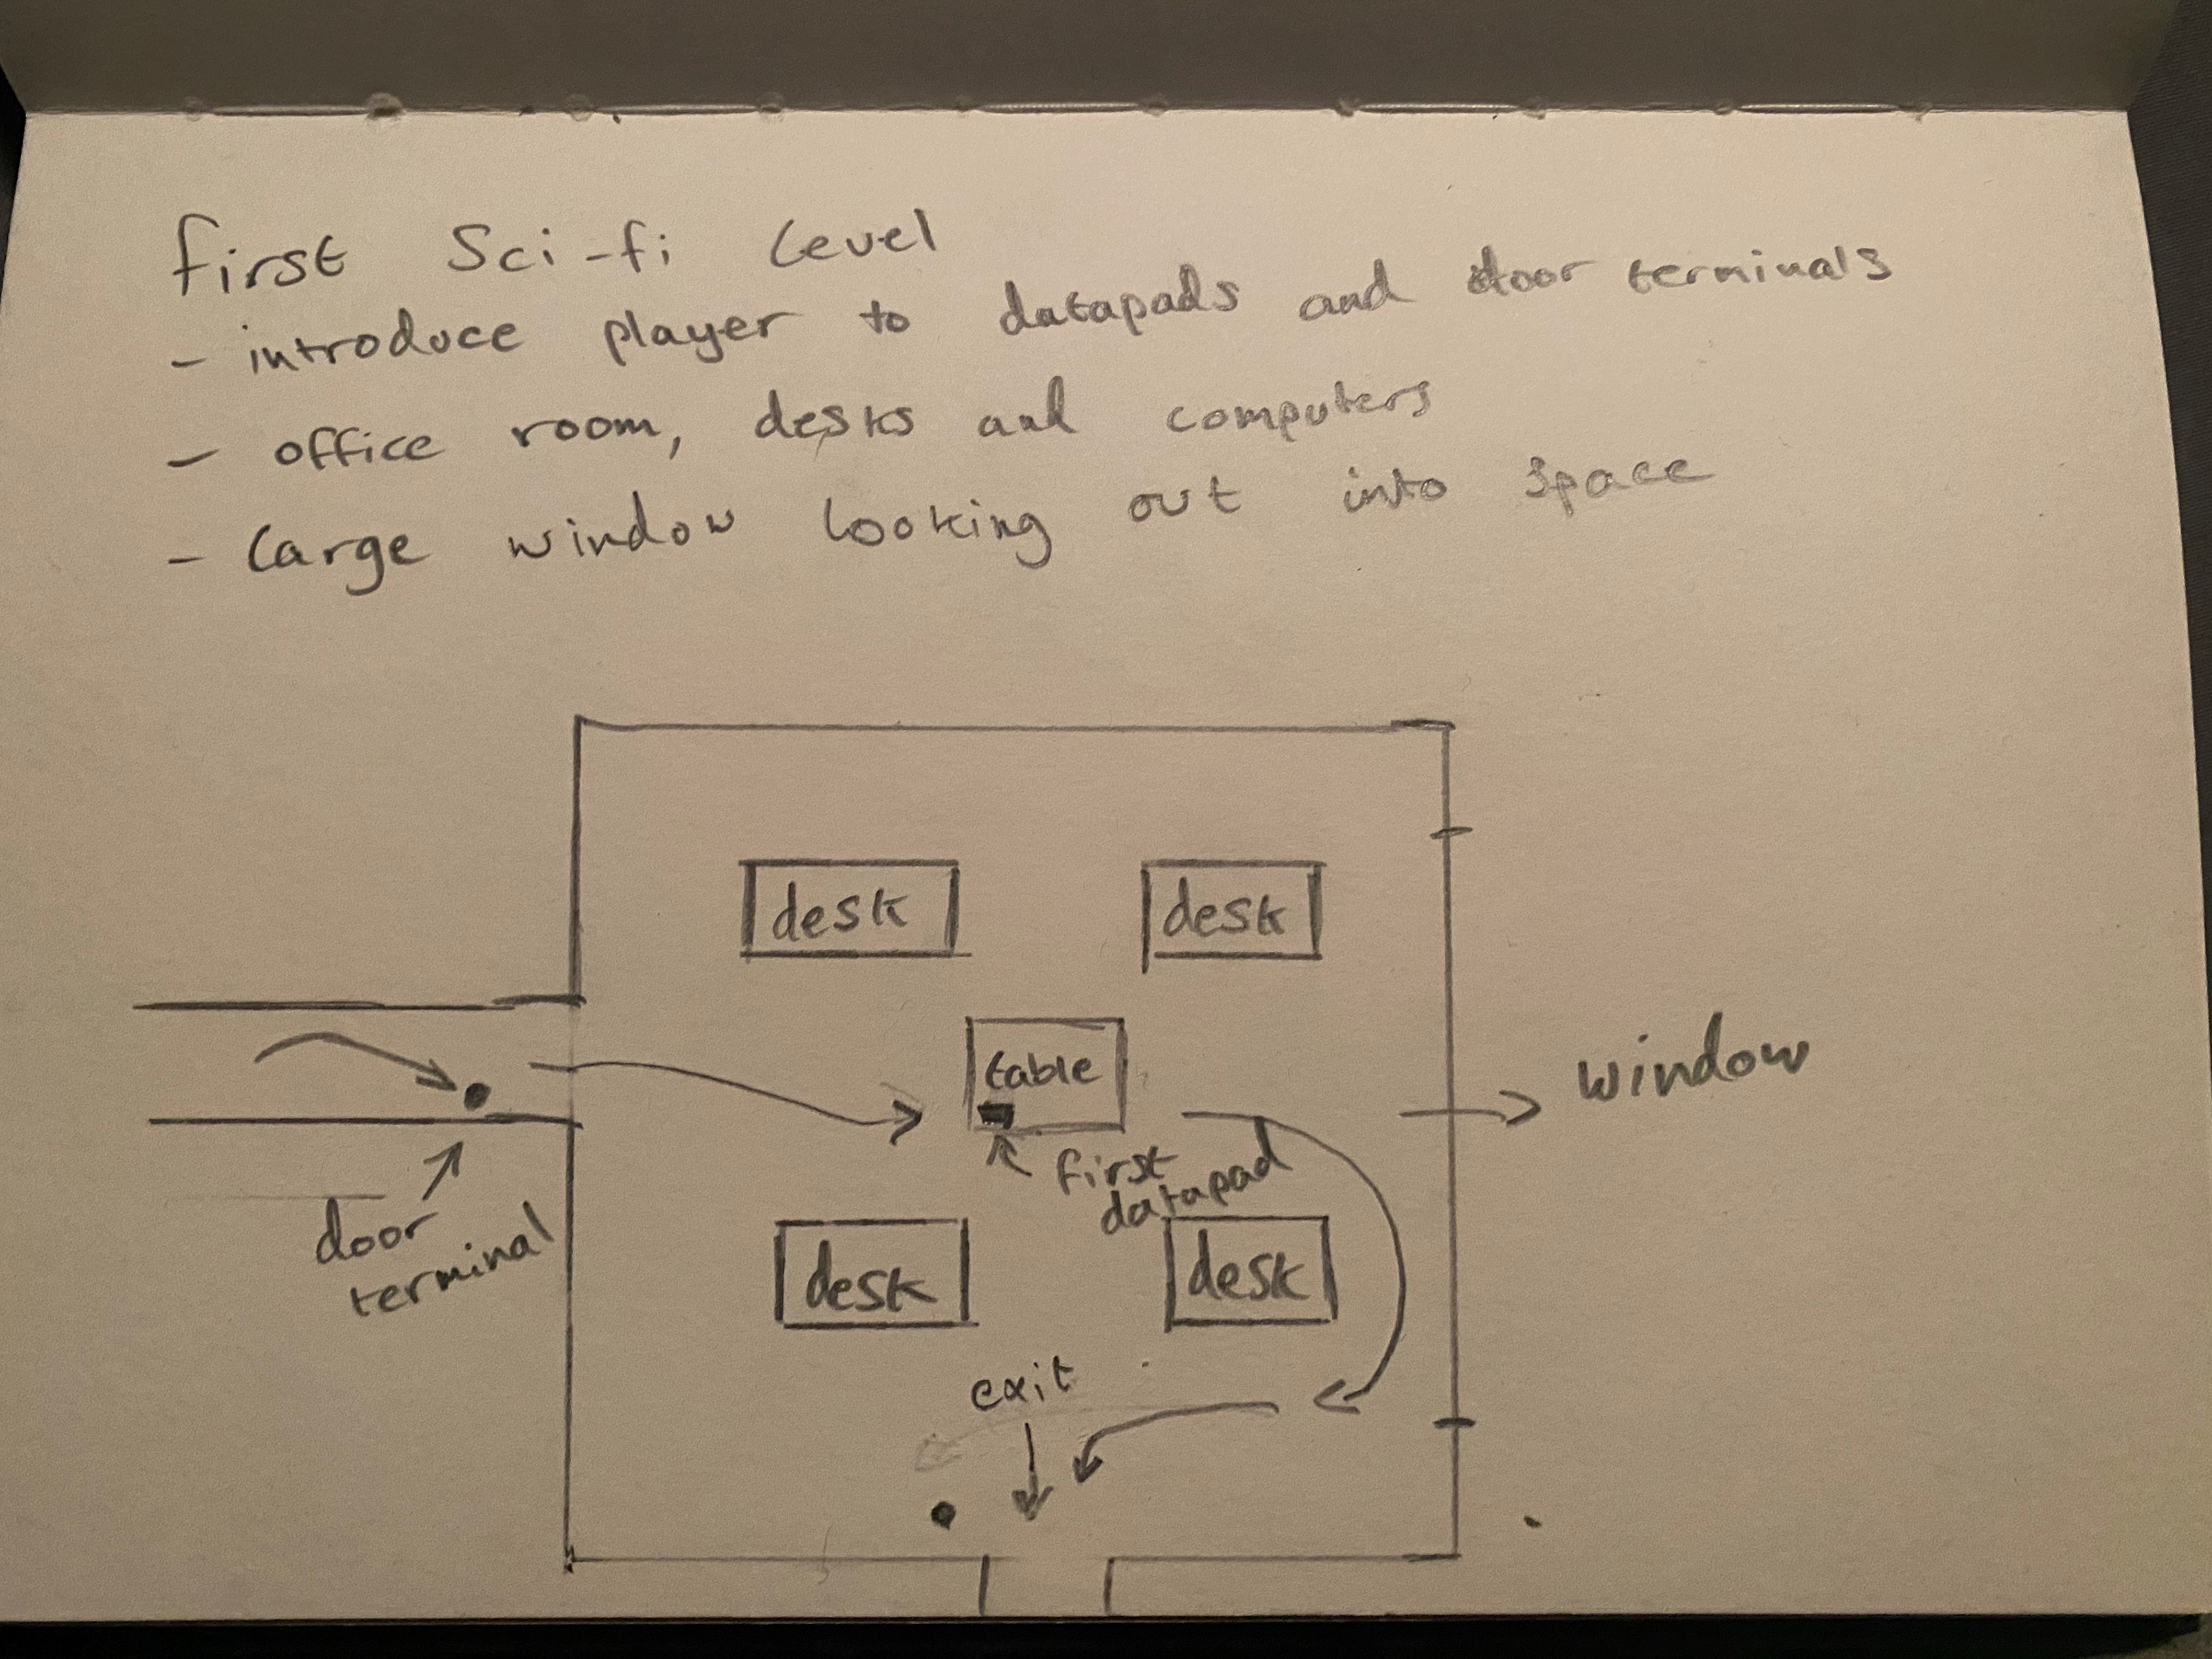 first Sci-fi level
- introduce player to datapads and door terminals
- office room, desks and computers
- large window looking out into space
desk
desk
table
window
first
datapad
door
terminal
desk
desk
exit